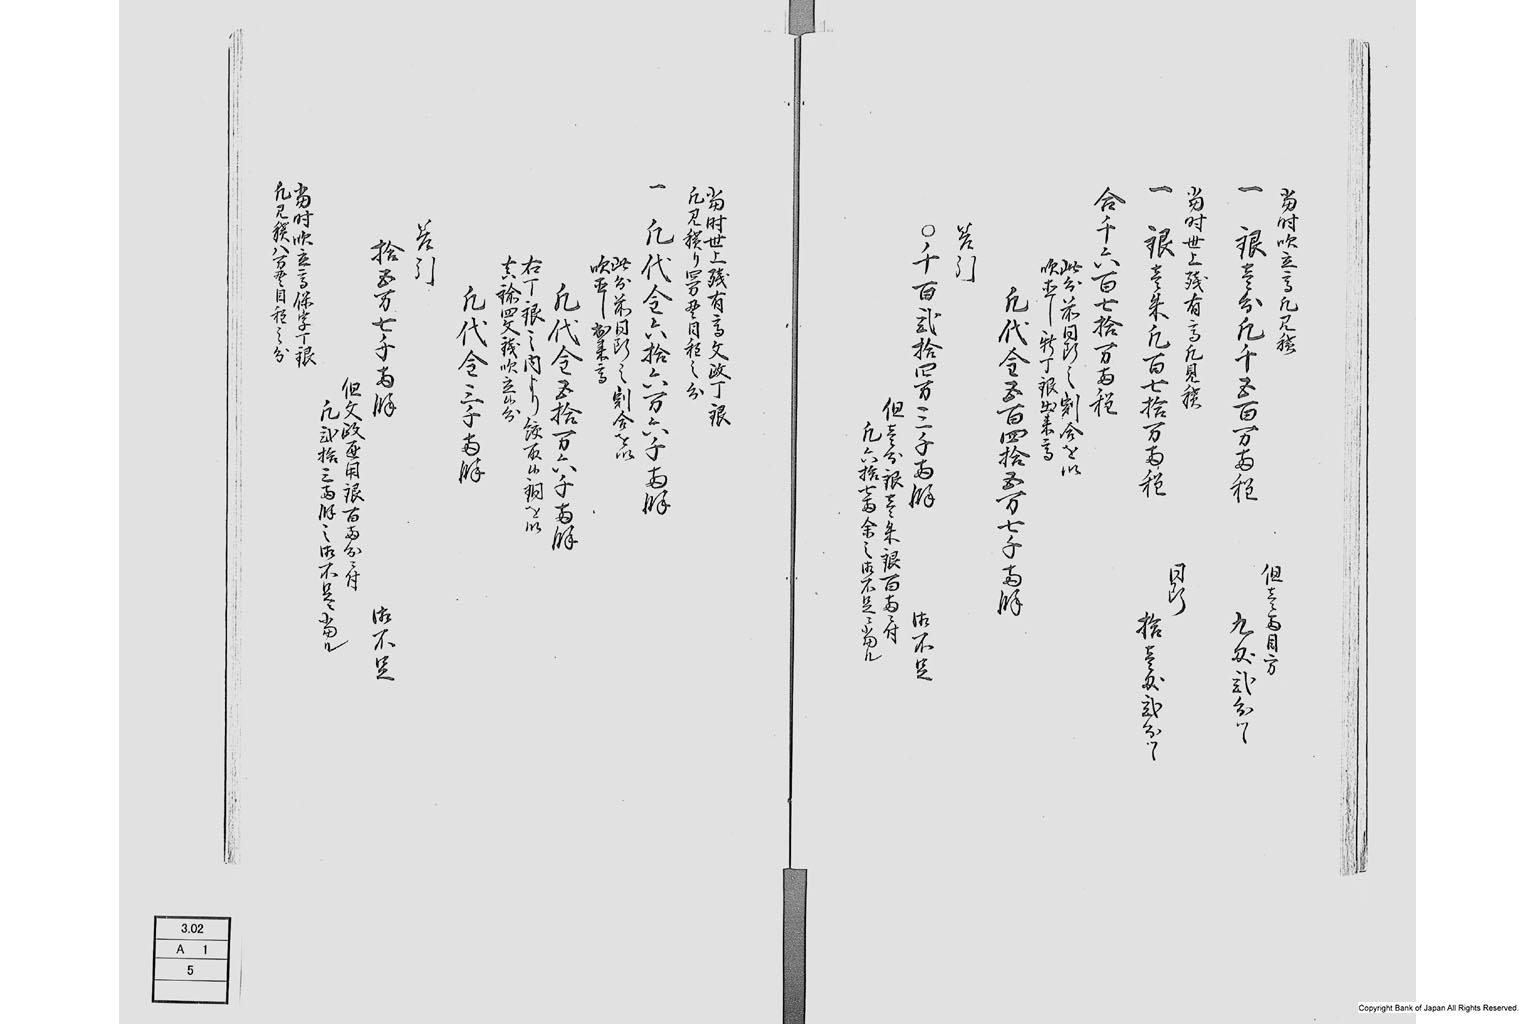 当時吹立高凡見積
一 銀壱分凡千五百万両程
但壱両目方
九匁弐分ツヽ
当時世上残有高凡見積
一 銀壱朱凡百七拾万両程
同断
拾壱匁弐分ツヽ
合千六百七拾万両程
此分前同断之割合を以
吹直し新丁銀出来高
凡代金五百四拾五万七千両餘
差引
〇千百弐拾四万三千両餘
御不足
但壱分銀壱朱銀百両ニ付
凡六拾七両余之御不足ニ当ル
当時世上残有高文政丁銀
凡見積り四万貫目程之分
一 凡代金六拾六万六千両餘
此分前同断之割合を以
吹直し出来高
凡代金五拾万六千両餘
右丁銀之内より絞取候銅を以
真鍮四文銭吹立候分
凡代金三千両餘
差引
拾五万七千両餘
御不足
但文政通用銀百両分ニ付
凡弐拾三両餘之御不足ニ当ル
当時吹立高保字丁銀
凡見積八万貫目程之分
3.02
A 1
5
Copyright Bank of Japan All Rights Reserved.